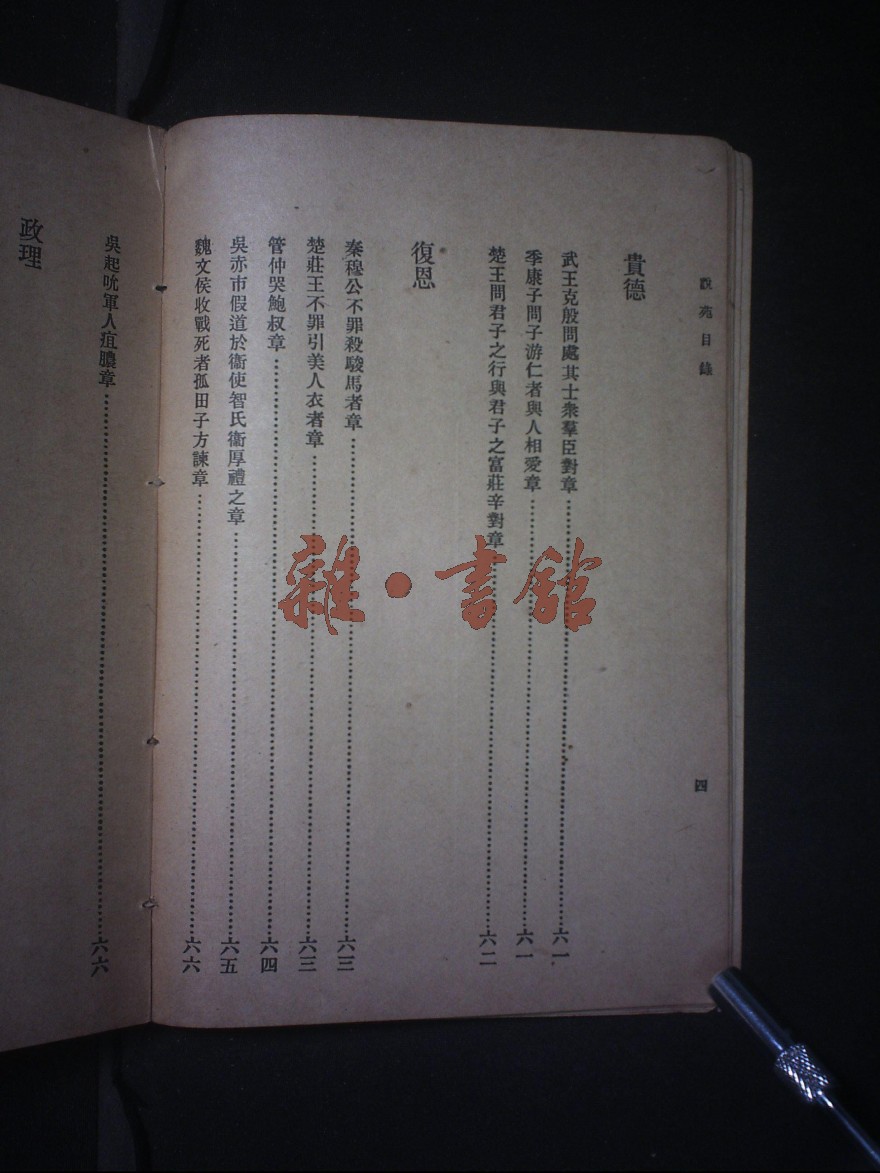 說苑目錄
四
貴德
武王克殷問處其士衆羣臣對章……六一
季康子問子游仁者與人相愛章……六一
楚王問君子之行與君子之富莊辛對章……六二
復恩
秦穆公不罪殺駿馬者章……六三
楚莊王不罪引美人衣者章……六三
管仲哭鮑叔章……六四
吳赤市假道於衞使智氏衞厚禮之章……六五
魏文侯收戰死者孤田子方諫章……六六
吳起吮軍人疽膿章……六六
政理
雜·書館